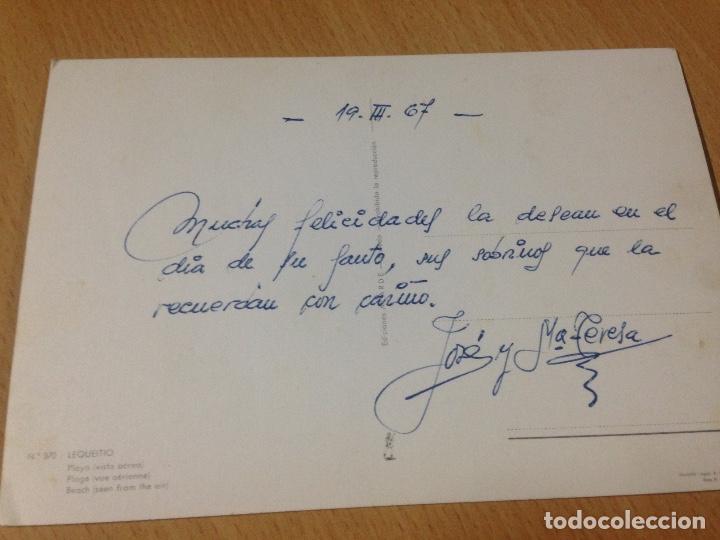 - 19.III.67 -
Muchas felicidades la desean en el
día de su santo, sus sobrinos que la
recuerdan con cariño.
José y Mª Teresa
Ediciones
la reproducción
N.º 370 LEQUEITIO
Playa (vista aérea)
Plage (vue aérienne)
Beach (seen from the air)
todocoleccion
todocoleccion.net